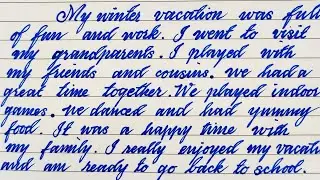 My winter vacation was full
of fun and work. I went to visit
my grandparents. I played with
my friends and cousins. We had a
great time together. We played indoor
games. We danced and had yummy
food. It was a happy time with
my family. I really enjoyed my vacati
and am ready to go back to school.